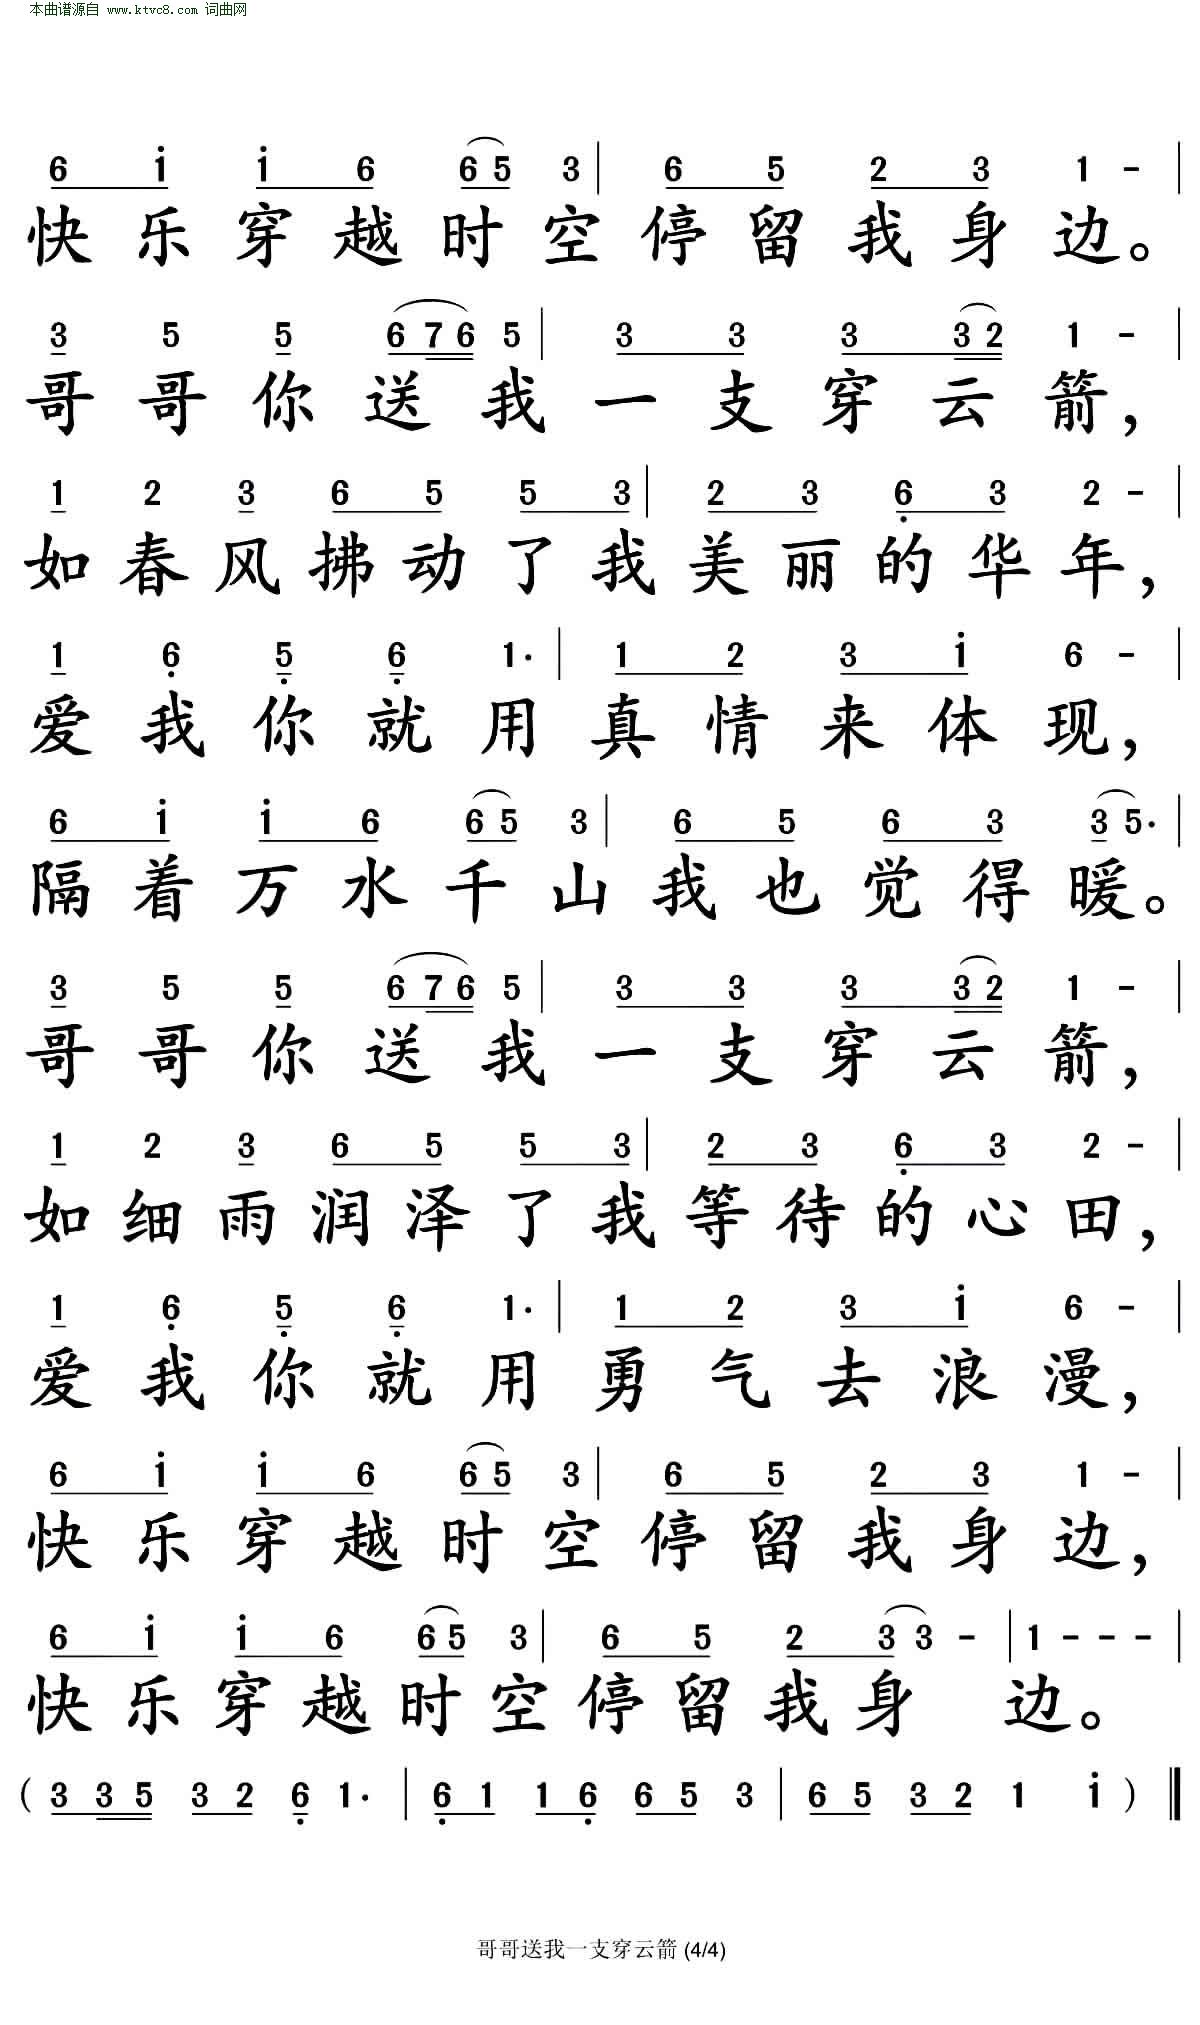 本曲谱源自 www.ktvc8.com 词曲网
6 i i 6 6 5 3 | 6 5 2 3 1 - |
快乐穿越时空停留我身边。
3 5 5 6 7 6 5 | 3 3 3 3 2 1 - |
哥哥你送我一支穿云箭，
1 2 3 6 5 5 3 | 2 3 6̣ 3 2 - |
如春风拂动了我美丽的华年，
1 6̣ 5̣ 6̣ 1· | 1 2 3 i 6 - |
爱我你就用真情来体现，
6 i i 6 6 5 3 | 6 5 6 3 3 5· |
隔着万水千山我也觉得暖。
3 5 5 6 7 6 5 | 3 3 3 3 2 1 - |
哥哥你送我一支穿云箭，
1 2 3 6 5 5 3 | 2 3 6̣ 3 2 - |
如细雨润泽了我等待的心田，
1 6̣ 5̣ 6̣ 1· | 1 2 3 i 6 - |
爱我你就用勇气去浪漫，
6 i i 6 6 5 3 | 6 5 2 3 1 - |
快乐穿越时空停留我身边，
6 i i 6 6 5 3 | 6 5 2 3 3 - | 1 - - - |
快乐穿越时空停留我身边。
( 3 3 5 3 2 6̣ 1· | 6̣ 1 1 6̣ 6 5 3 | 6 5 3 2 1 i ) ‖
哥哥送我一支穿云箭 (4/4)